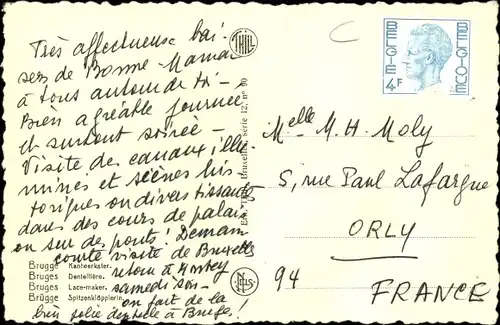 Très affectueuse bai-
sers de Bonne Maman
à tous autour de toi -
Bien agréable journée
et surtout soirée -
Visite des canaux illu-
minés et scènes his-
toriques ou divertissantes
dans des cours de palais
ou sur des ponts! Demain
courte visite de Bruxelles
retour à
samedi soir -
on fait de la
bien jolie dentelle à Bruges!
Brugge Kanteerkster.
Bruges Dentellière.
Bruges Lace-maker.
Brügge Spitzenklöpplerin.
THILL
Bruxelles, série 12, n° 90
NELS
BELGIE
BELGIQUE
4F
Melle M. H. Moly
5, rue Paul Lafargue
ORLY
94 FRANCE